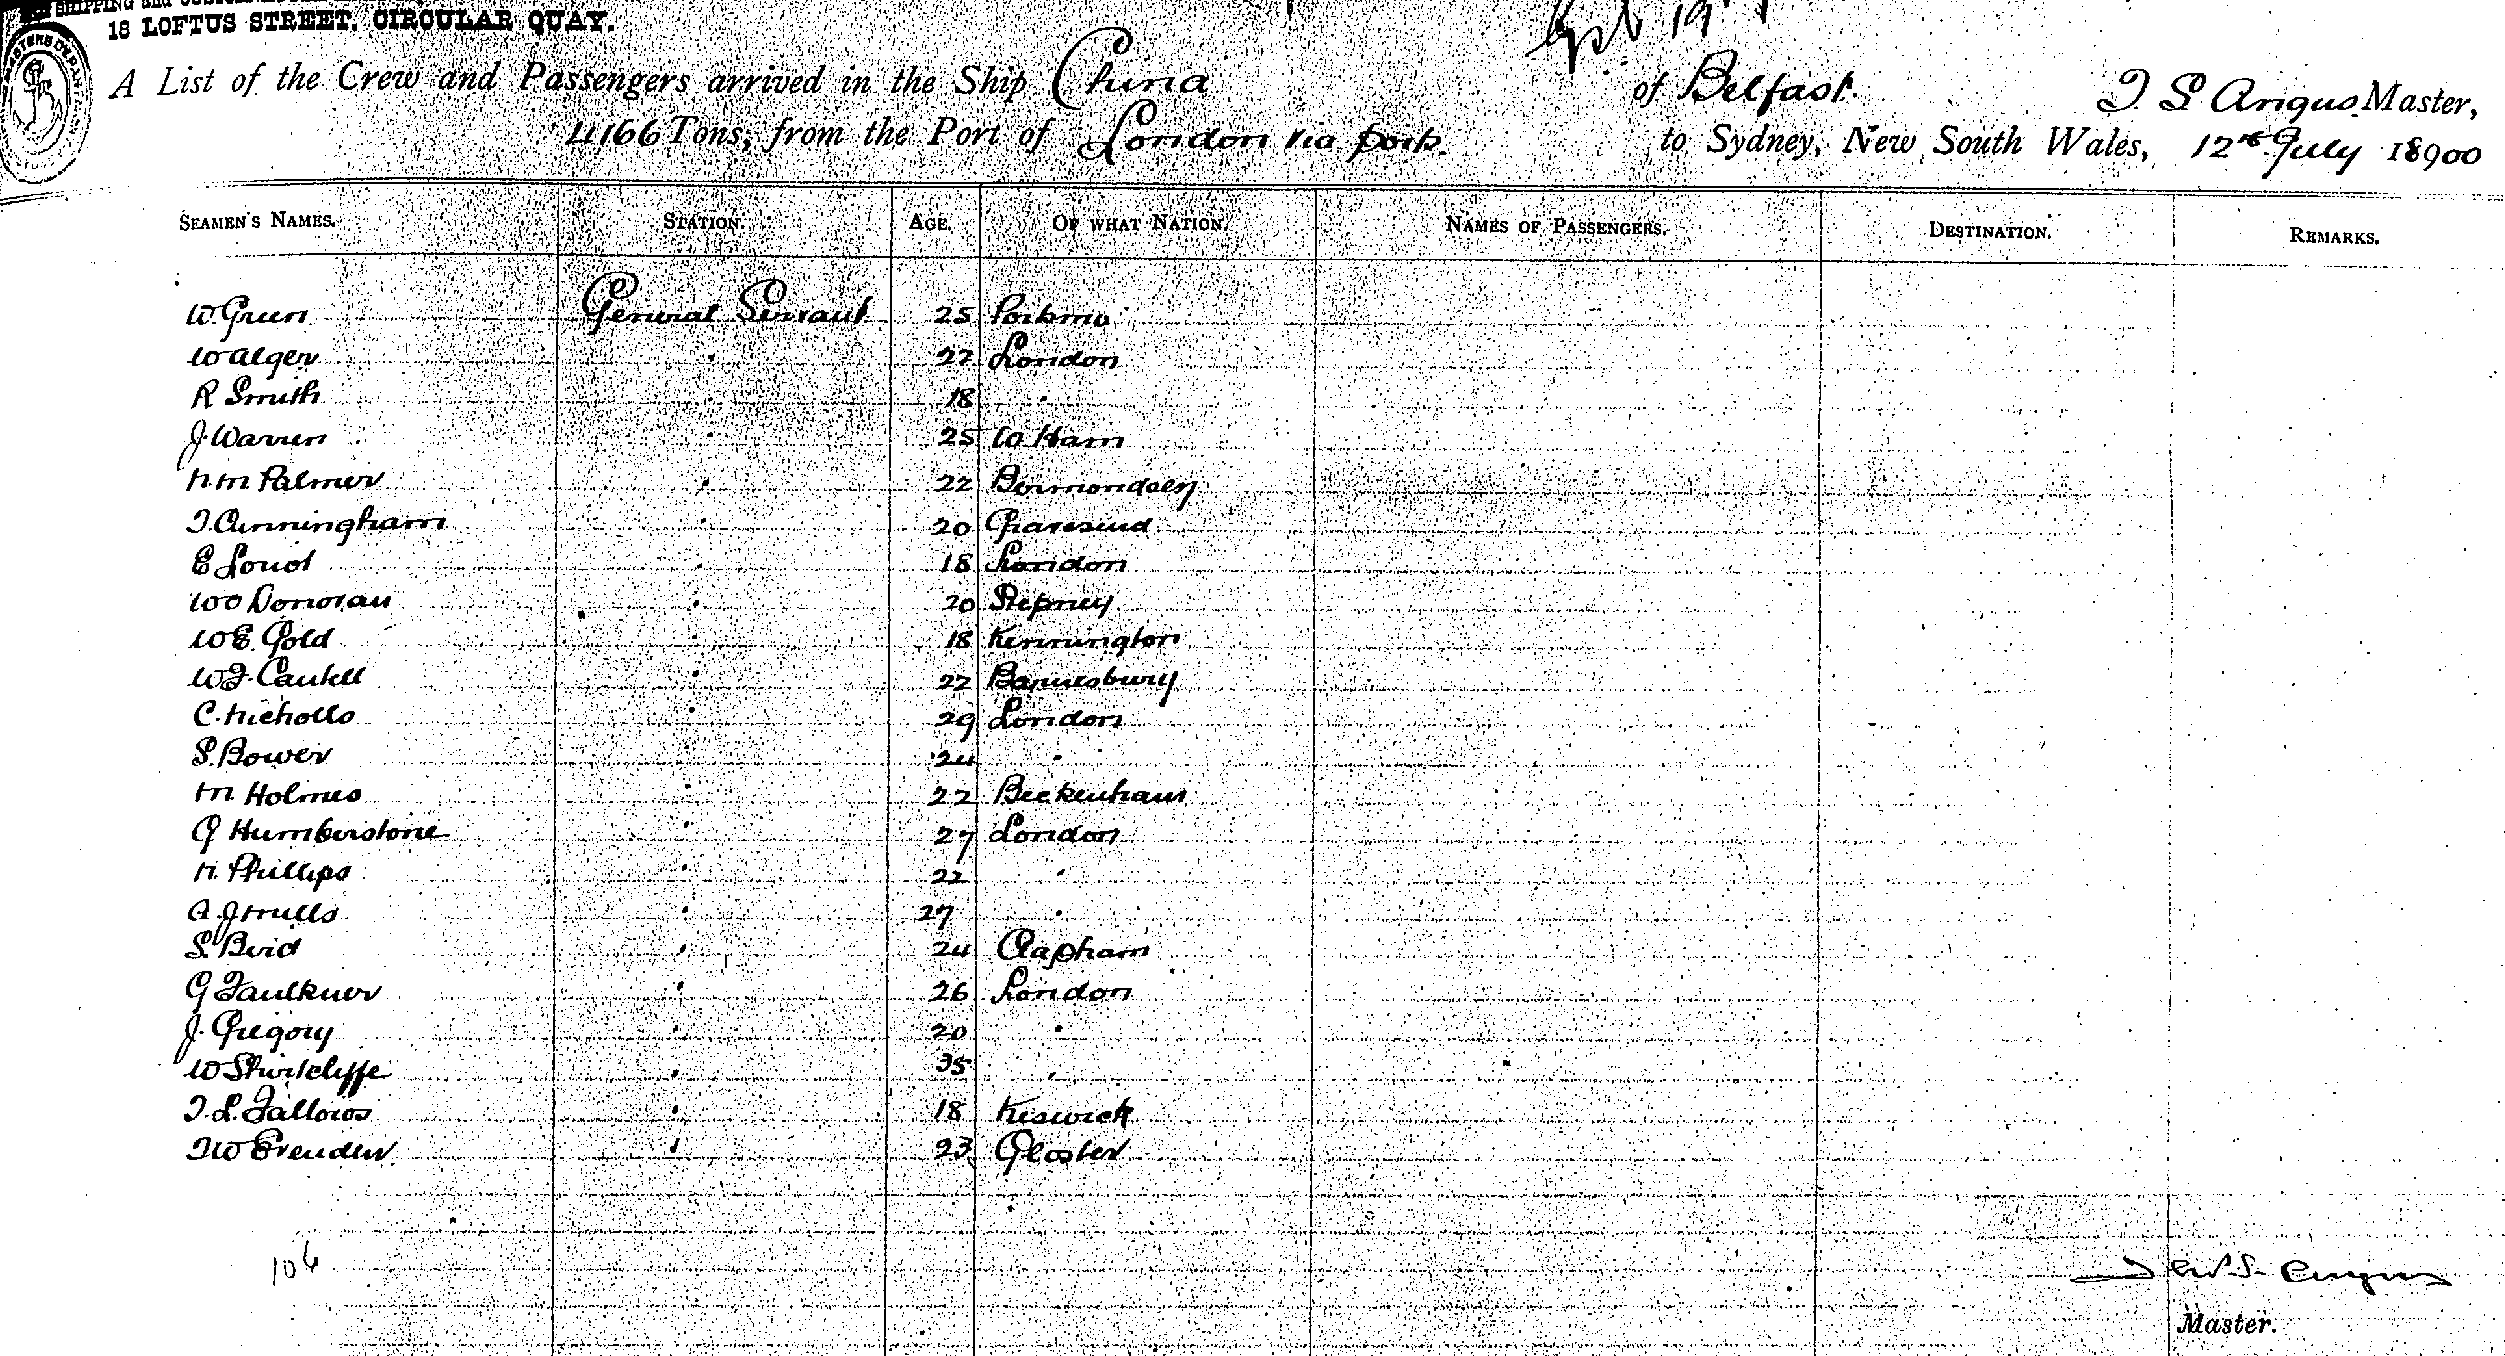 SHIPPING and
18 LOFTUS STREET. CIRCULAR QUAY.
A List of the Crew and Passengers arrived in the Ship China of Belfast. T S Angus Master,
4166 Tons, from the Port of London via ports. to Sydney, New South Wales, 12th July 18900
SEAMEN'S NAMES. STATION. AGE. OF WHAT NATION. NAMES OF PASSENGERS. DESTINATION. REMARKS.
W. Green General Servant 25 Portsmo
W Alger " 22 London
R Smith " 18 "
J. Warren " 25 W Ham
H M Palmer " 22 Bermondsey
T. Cunningham " 20 Gravesend
E " 18 London
W O Donovan " 20 Stepney
W E. Gold " 18 Kennington
W J. Cantell " 22 Barnesbury
C. Nicholls " 29 London
S. Bower " 24 "
M Holmes " 22 Beckenham
G Humberstone " 27 London
H. Phillips " 22 "
A J Mills " 27 "
S. Bird " 24 Clapham
G Faulkner " 26 London
J. Gregory " 20 "
W Shirtcliffe " 35 "
T. L. Fallows " 18 Keswick
T W " 23 Gloster
106
Angus
Master.